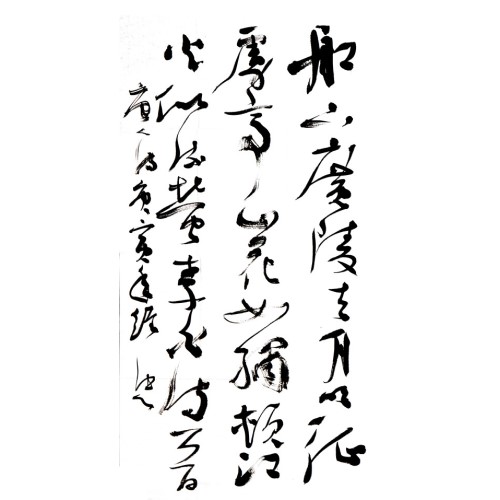 船下廣陵去月明征
虜亭山花如繡頰江
火似流螢李白詩
唐人詩庚寅年